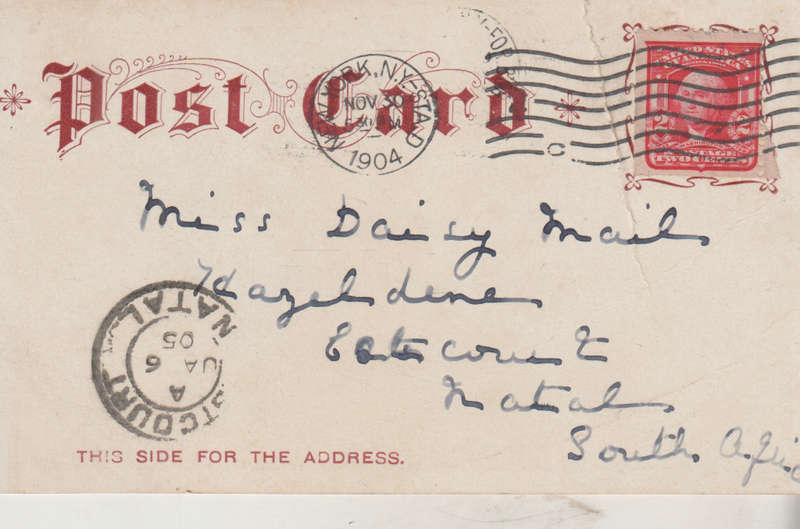 Post Card
NEW YORK, N.Y. STA. D
NOV 30
1904
TWO
Miss Daisy Mail
Hazeldene
Estcourt
Natal
South Afric
ESTCOURT NATAL
A
JA 6
05
THIS SIDE FOR THE ADDRESS.